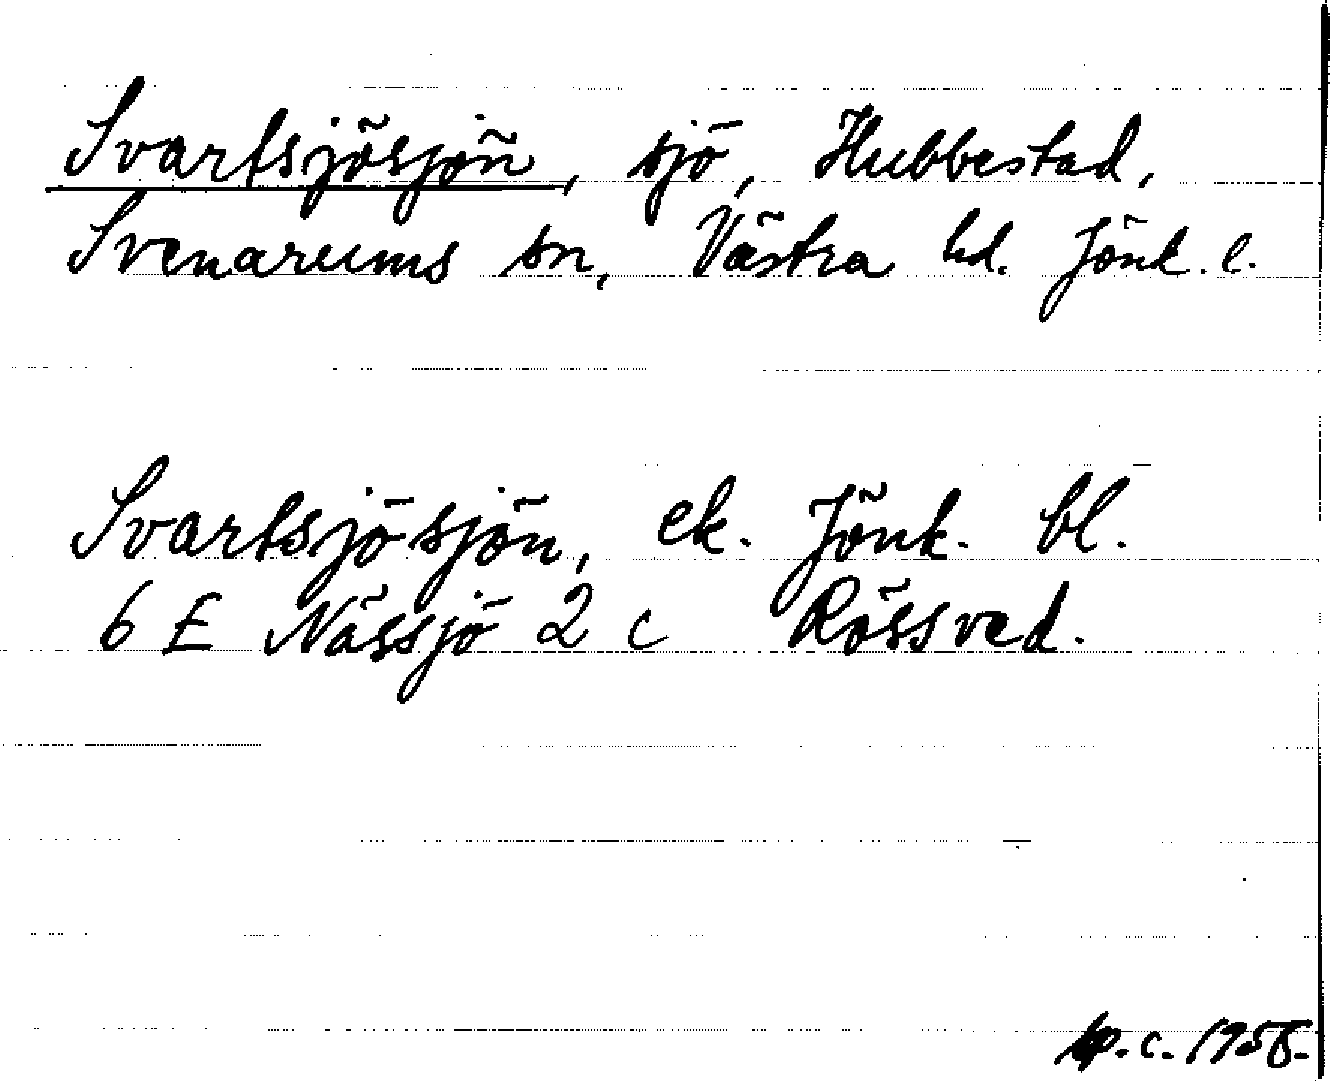 Svartsjösjön, sjö, Hubbestad,
Svenarums sn, Västra hd. Jönk. l.
Svartsjösjön, ek. Jönk. bl.
6 E Nässjö 2 c Rössved.